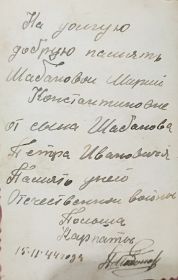 На долгую
добрую память
Шабановой Марии
Константиновне
от сына Шабанова
Петра Ивановича
Память дней
Отечественной войны
Польша
Карпаты
15.11.44 года